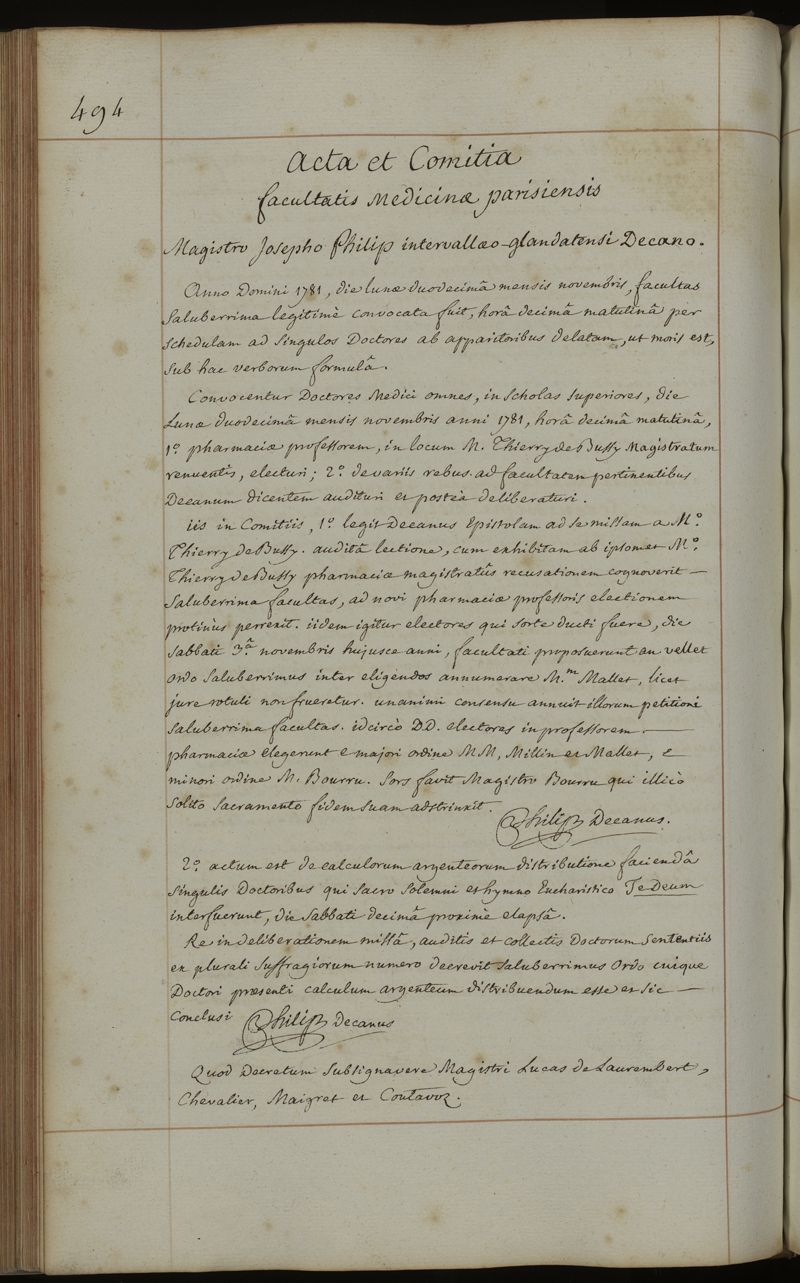 494
Acta et Comitia
facultatis Medicinæ parisiensis
Magistro Josepho Philip intervallæo-glandatensi Decano.
Anno Domini 1781, die lunæ duodecimâ mensis novembris, facultas
Saluberrima legitimè convocata fuit, horâ decimâ matutinâ per
schedulam ad singulos Doctores ab apparitoribus delatam, ut moris est,
sub hac verborum formulâ.
Convocentur Doctores Medici omnes, in Scholas superiores, die
Lunæ duodecimâ mensis novembris anni 1781, horâ decimâ matutinâ,
1.º pharmaciæ professorem, in locum M. Thierry de Bussy Magistratum
renuentis, electuri; 2.º de variis rebus ad facultatem pertinentibus
Decanum dicentem audituri et posteà deliberaturi.
iis in Comitiis, 1.º legit Decanus Epistolam ad se missam a M.º
Thierry de Bussy. auditâ lectione, cum exhibitam ab ipsomet M.º
Thierry de Bussy pharmaciæ magistratûs recusationem cognoverit —
Saluberrima facultas, ad novi pharmaciæ professoris electionem
protinùs perrexit. iidem igitur electores qui sorte ducti fuere, die
Sabbati 3.ª novembris hujusce anni, facultati proposuerunt an vellet
ordo saluberrimus inter eligendos annumerare M.m Mallet, licet
jure rotuli non frueretur. unanimi consensu annuit illorum petitioni
Saluberrima facultas. idcircò D.D. electores in professorem —
pharmaciæ elegerunt e majori ordine MM, Millin et Mallet, e
minori ordine M. Bourru. Sors favit Magistro Bourru qui illicò
solito Sacramento fidem suam adstrinxit.
Philip Decanus.
2.º actum est de calculorum argenteorum distributione faciendâ
singulis Doctoribus qui Sacro Solemni et hymno Eucharistico Te Deum
interfuerunt, die Sabbati decimâ proximè elapsâ.
Re in deliberationem missâ, auditis et collectis Doctorum Sententiis
ex plurali suffragiorum numero decrevit saluberrimus Ordo cuique
Doctori præsenti calculum argenteum distribuendum esse et sic —
conclusi Philip Decanus
Quod Decretum Subsignavere Magistri Lucas de Laurembert,
Chevalier, Maigret et Coutavoz.